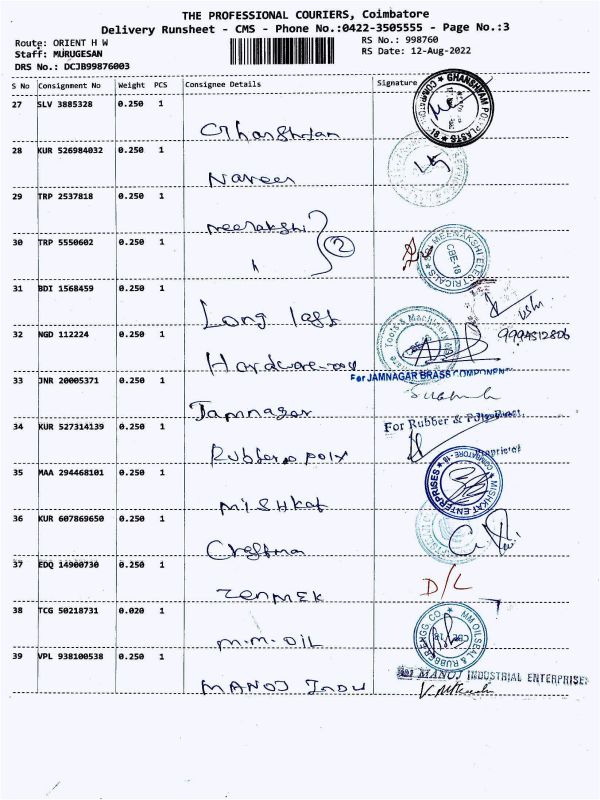 THE PROFESSIONAL COURIERS, Coimbatore
Delivery Runsheet - CMS - Phone No.:0422-3505555 - Page No.:3
Route: ORIENT H W
RS No.: 998760
Staff: MURUGESAN
RS Date: 12-Aug-2022
DRS No.: DCJB99876003
S No Consignment No Weight PCS Consignee Details Signature
27 SLV 3885328 0.250 1
Ghanshdam
GHANSHYAM POLYPLASTS
28 KUR 526984032 0.250 1
Naveen
29 TRP 2537818 0.250 1
meenakshi
2
30 TRP 5550602 0.250 1
MEENAKSHI ELECTRICALS
CBE-18
31 BDI 1568459 0.250 1
Long last
32 NGD 112224 0.250 1
Tools & Machinery
Hardware
33 JNR 20005371 0.250 1
For JAMNAGAR BRASS COMPONENT
Jamnagar
34 KUR 527314139 0.250 1
For Rubber &
Rubber poly
Proprietor
35 MAA 294468101 0.250 1
MISHKAT ENTERPRISES
COIMBATORE - 18
MISHKAT
36 KUR 607869650 0.250 1
37 EDQ 14900730 0.250 1
D/L
ZENMEK
38 TCG 50218731 0.020 1
MM OILSEAL & RUBBER ENGG. CO
CBE-18
M.M.OIL
39 VPL 938100538 0.250 1
MANOJ INDUSTRIAL ENTERPRISES
MANOJ INDU